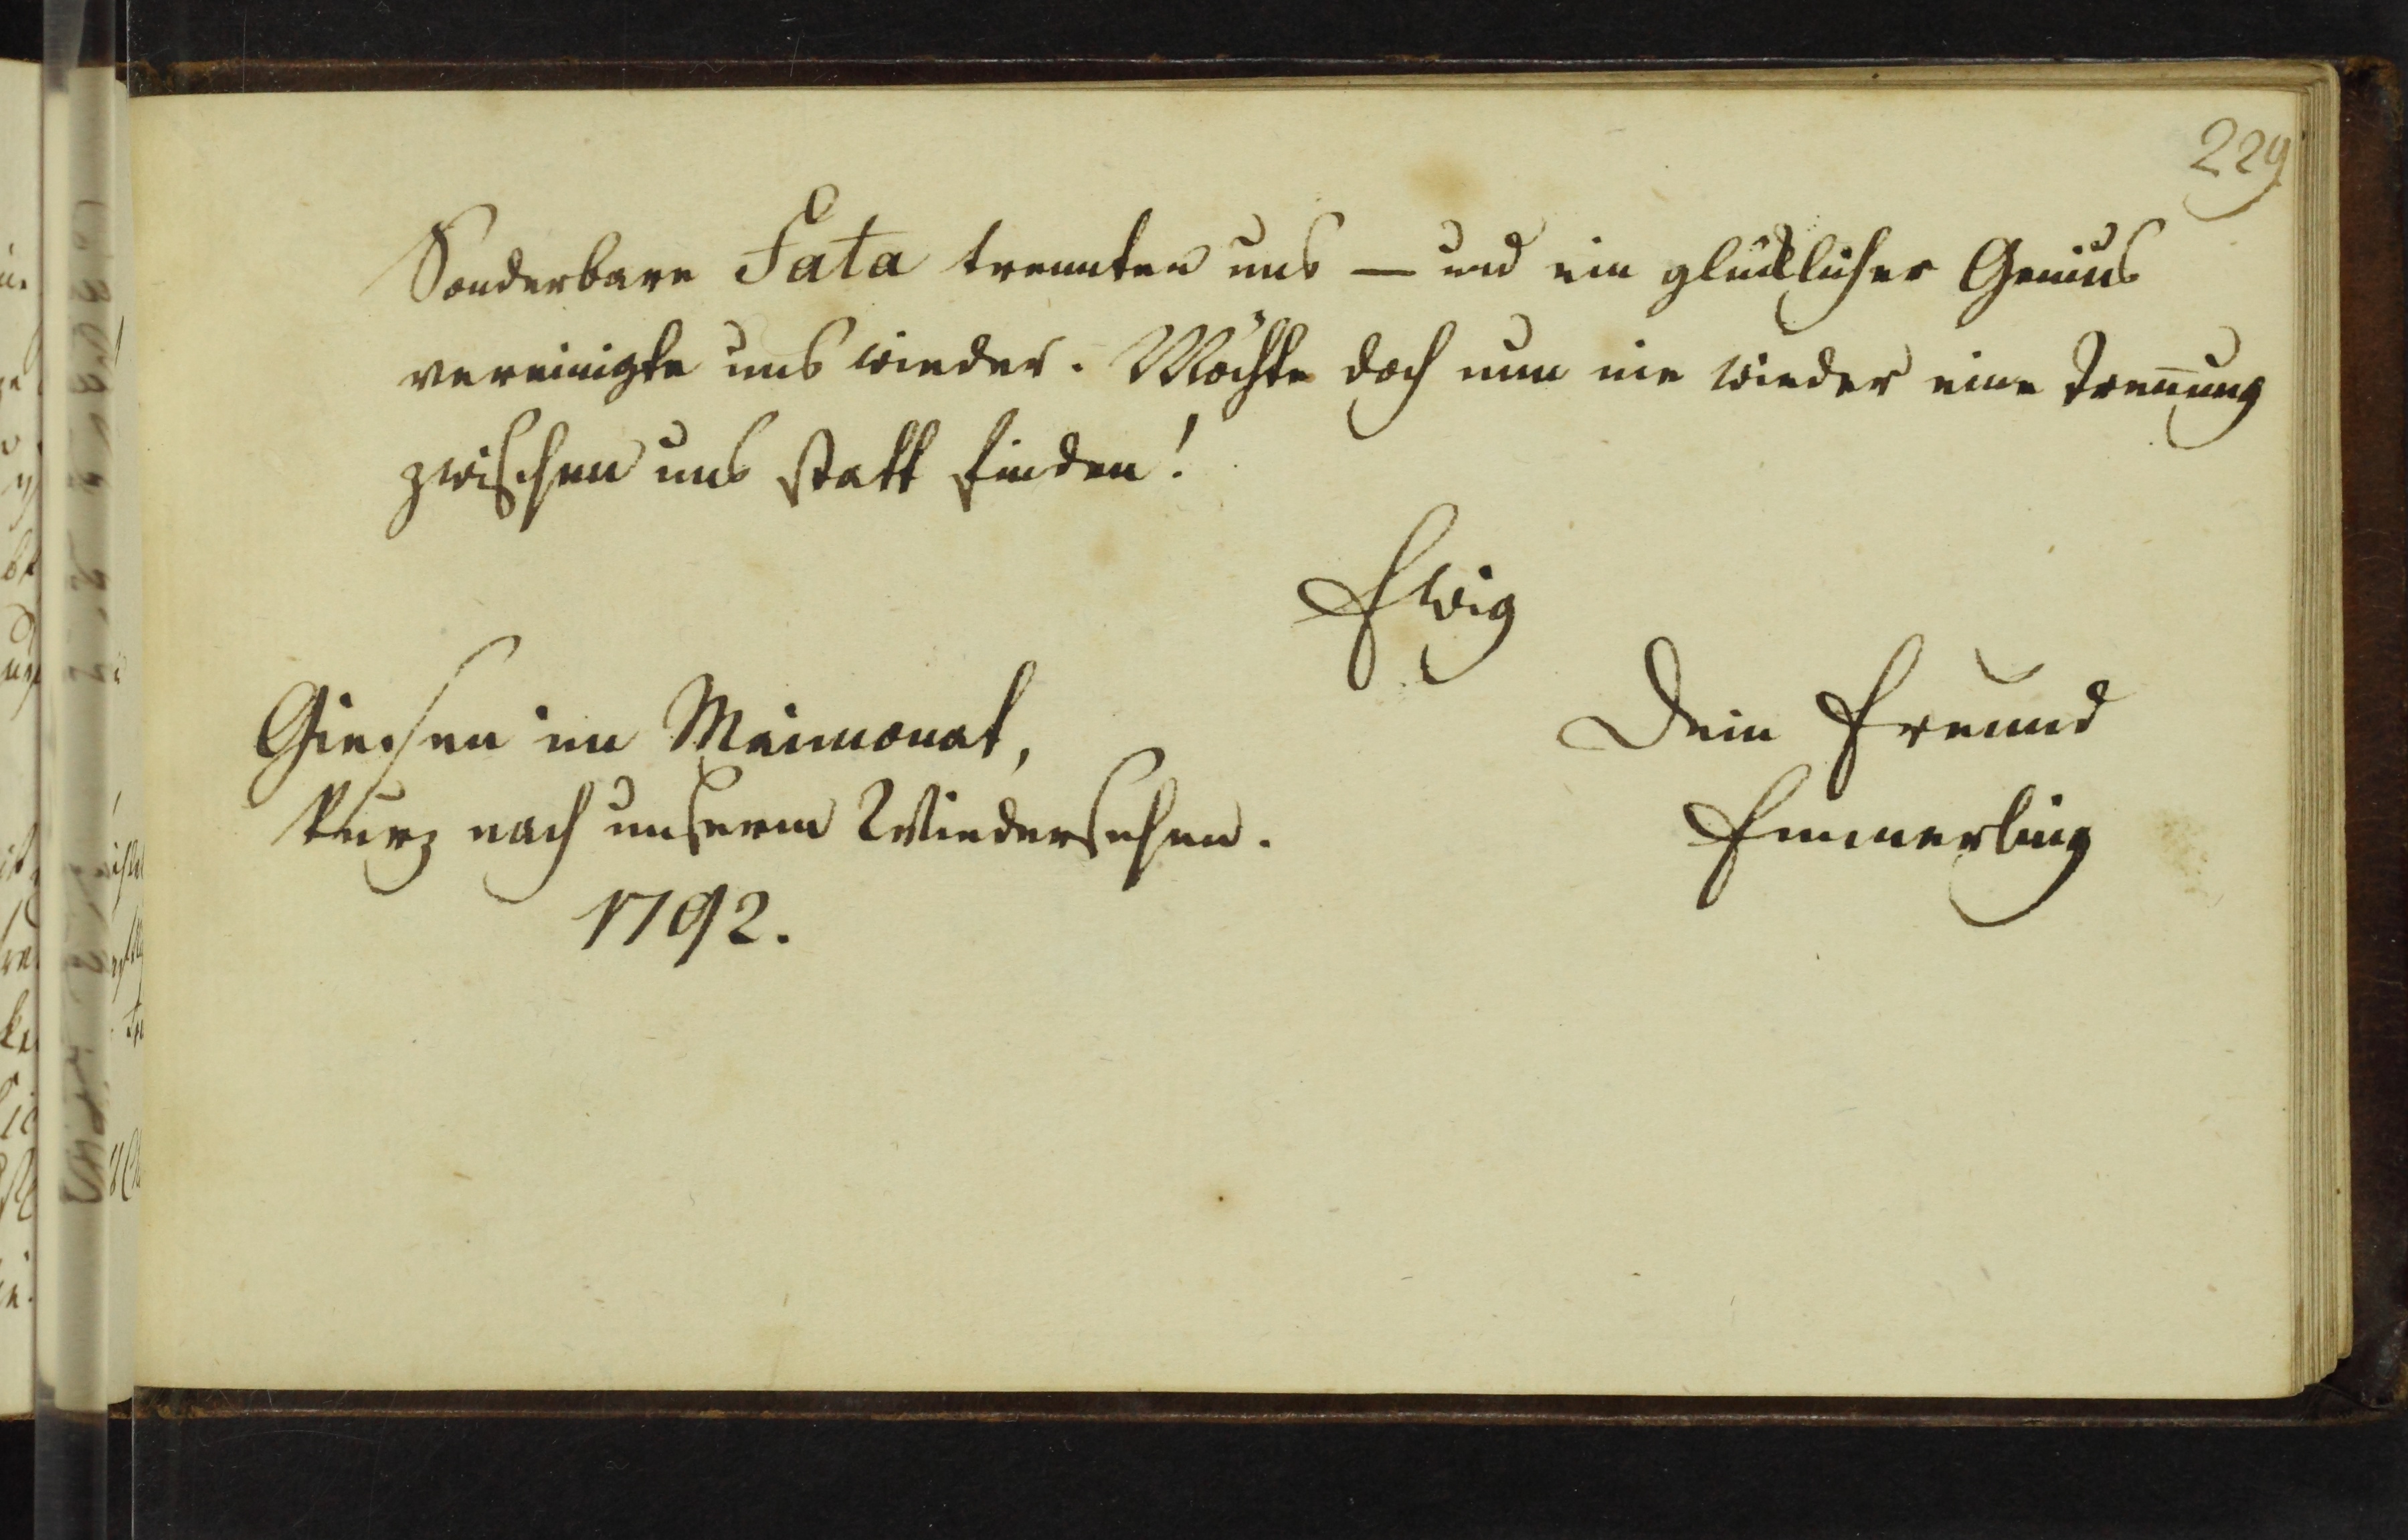 229
Sonderbare Fata trennten uns — und ein glücklicher Genius
vereinigte uns wieder. Möchte doch nun nie wieder eine Tren̄ung
zwischen uns statt finden!
Ewig
Dein Freund
Emmerling
Giesen im Maimonat,
kurz nach unserm Wiedersehen.
1792.